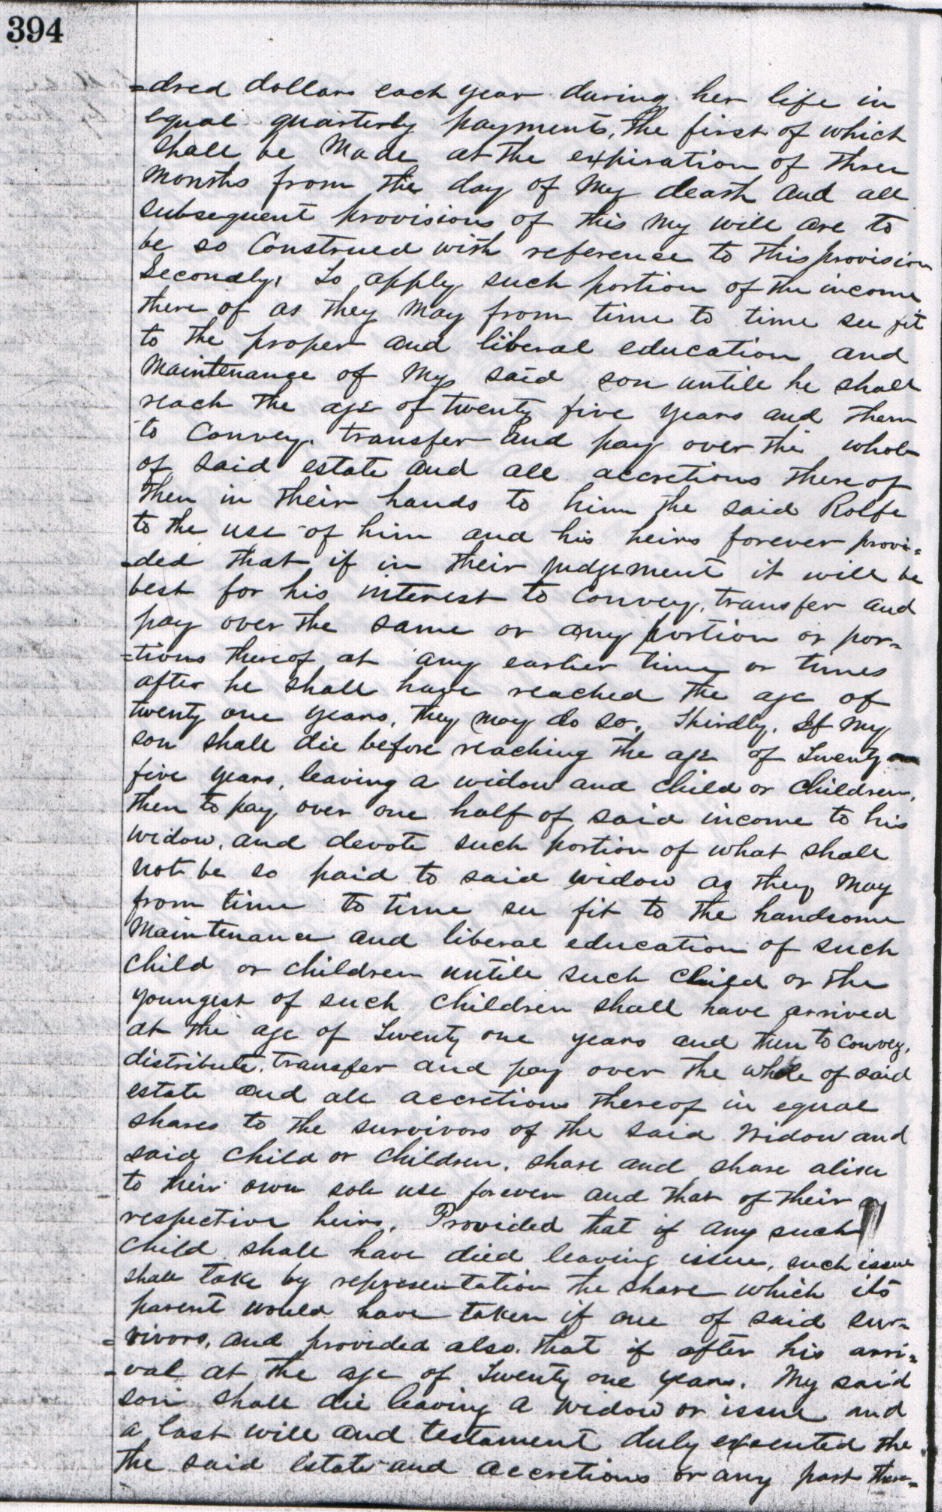 394
=dred dollars each year during her life in
equal quarterly payments, the first of which
shall be Made at the expiration of three
Months from the day of My death and all
subsequent provisions of this My will are to
be so Construed with reference to this provision
Secondly, To apply such portion of the income
there of as they May from time to time see fit
to the proper and liberal education and
Maintenance of My said son untill he shall
reach the age of twenty five years and them
to Convey, transfer and pay over the whole
of said estate and all accretions there of
then in their hands to him the said Rolfe
to the use of him and his heirs forever provi=
=ded that if in their judgement it will be
best for his interest to Convey, transfer and
pay over the same or any portion or por=
=tions thereof at any earlier time or times
after he shall have reached the age of
twenty one years, they may do so. Thirdly, If My
son shall die before reaching the age of Twenty
five years, leaving a widow and child or children,
then to pay over one half of said income to his
widow, and devote such portion of what shall
not be so paid to said widow as they May
from time to time see fit to the handsome
Maintenance and liberal education of such
child or children untill such child or the
youngest of such children shall have arrived
at the age of Twenty one years and then to Convey,
distribute, transfer and pay over the whole of said
estate and all accretions thereof in equal
shares to the survivors of the said Widow and
said child or children, share and share alike
to their own sole use forever and that of their
respective heirs. Provided that if any such
child shall have died leaving issue, such issue
shall take by representation the share which its
parent would have taken if one of said sur=
=vivors, and provided also that if after his arri=
=val at the age of Twenty one years, My said
son shall die leaving a widow or issue and
a last will and testament duly executed the
the said estate and accretions or any part there=